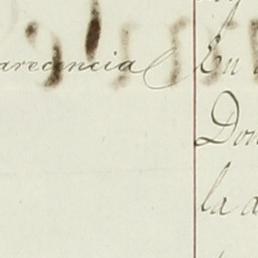 arecencia En
Don
la a